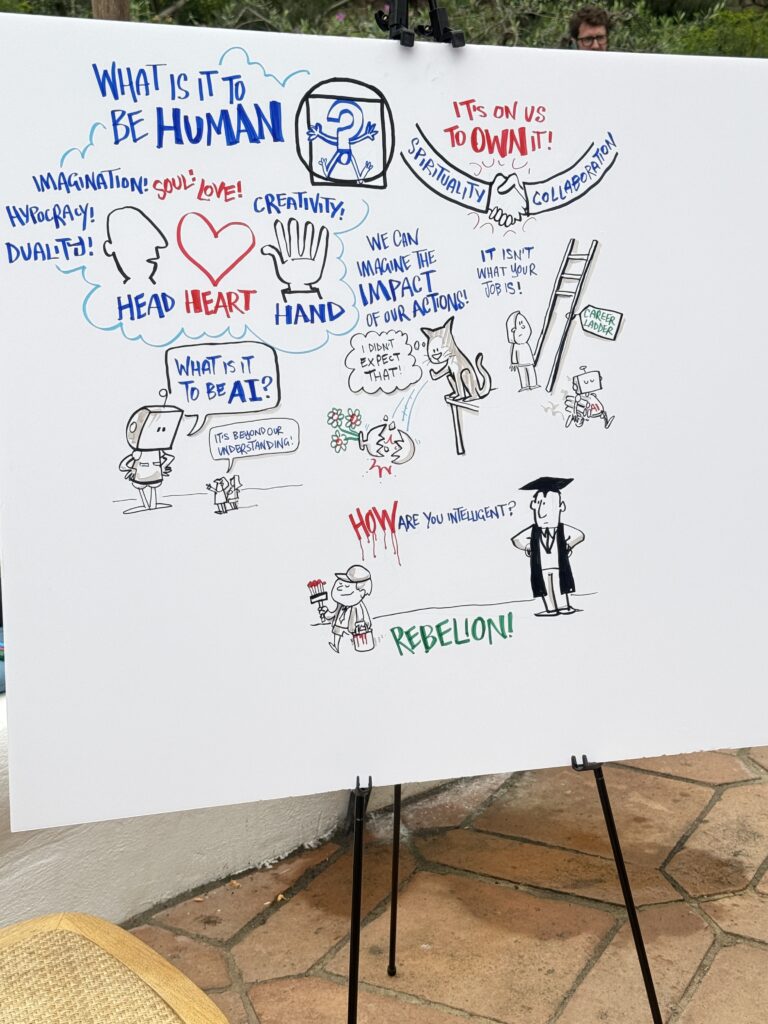 WHAT IS IT TO
BE HUMAN
?
IMAGINATION! SOUL! LOVE!
HYPOCRACY!
DUALITY!
CREATIVITY!
HEAD HEART HAND
IT'S ON US
TO OWN IT!
SPIRITUALITY
COLLABORATION
WE CAN
IMAGINE THE
IMPACT
OF OUR ACTIONS!
IT ISN'T
WHAT YOUR
JOB IS!
CAREER
LADDER
AI
I DIDN'T
EXPECT
THAT!
WHAT IS IT
TO BE AI?
IT'S BEYOND OUR
UNDERSTANDING!
HOW ARE YOU INTELLIGENT?
REBELION!